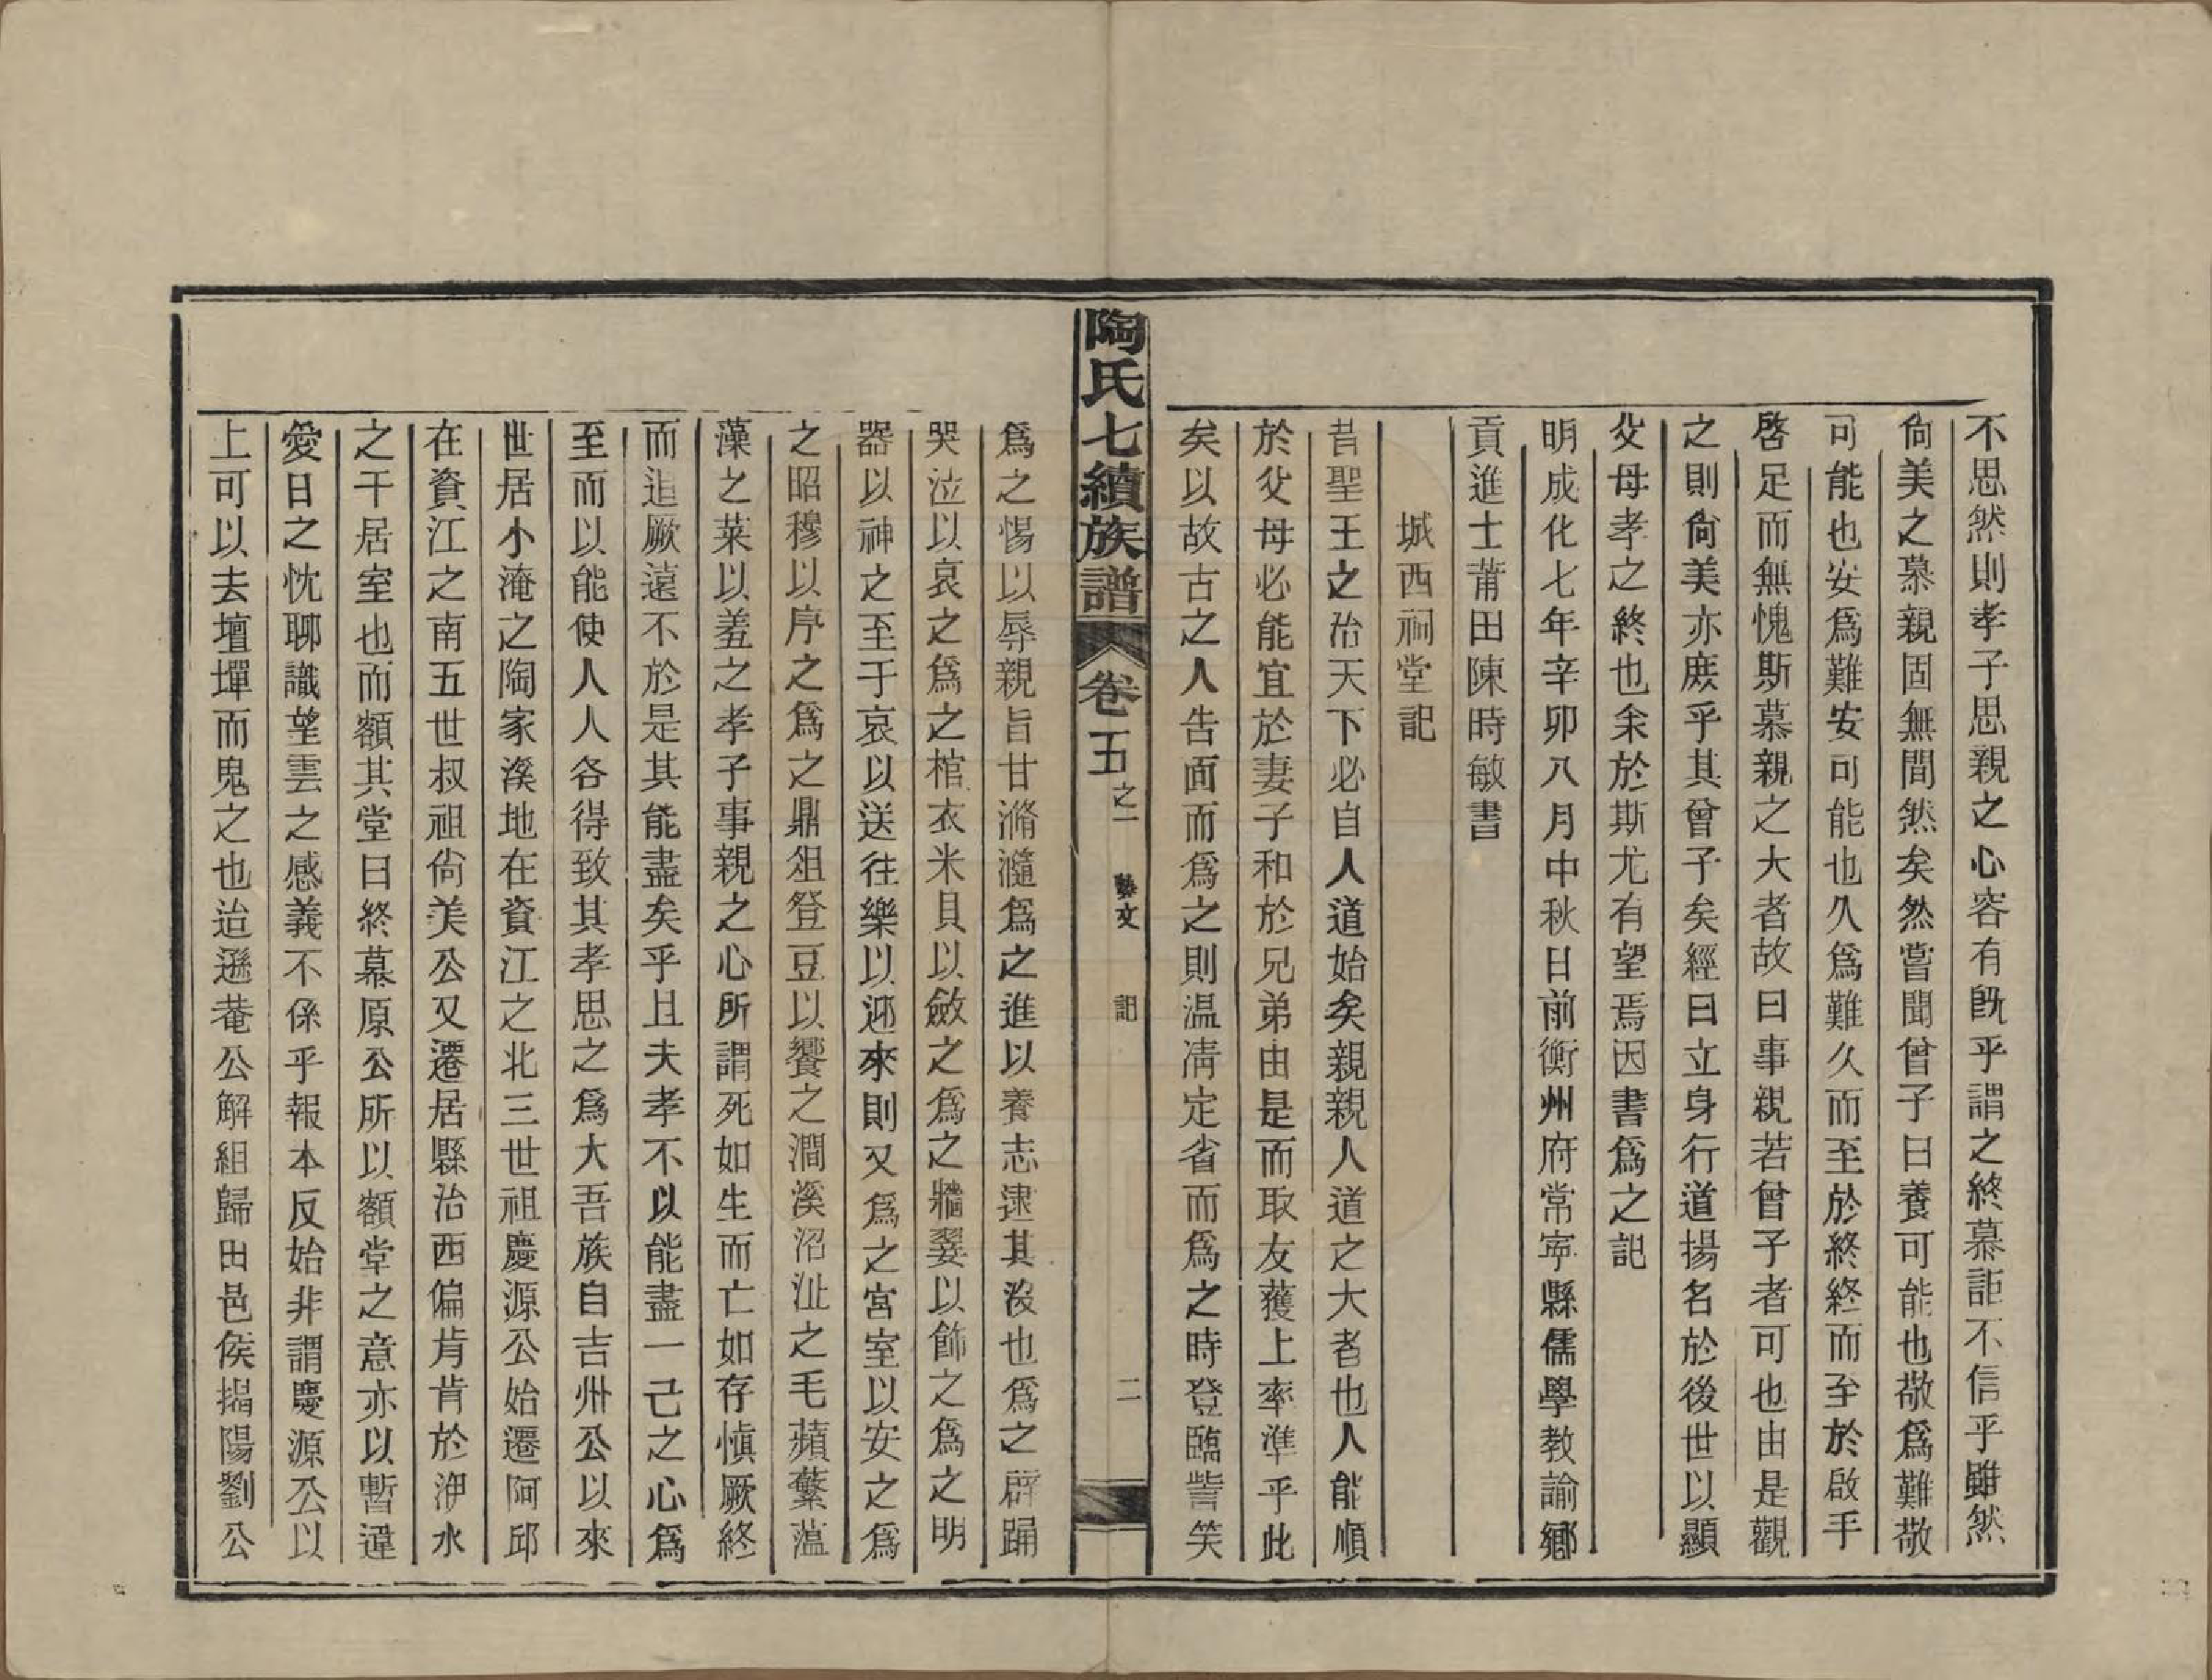 不思然則孝子思親之心容有旣乎謂之終慕詎不信乎雖然
尙美之慕親固無間然矣然嘗聞曾子曰養可能也敬爲難敬
可能也安爲難安可能也久爲難久而至於終終而至於啟手
啓足而無愧斯慕親之大者故曰事親若曾子者可也由是觀
之則尙美亦庶乎其曾子矣經曰立身行道揚名於後世以顯
父母孝之終也余於斯尤有望焉因書爲之記
明成化七年辛卯八月中秋日前衡州府常寧縣儒學教諭鄉
貢進士莆田陳時敏書
城西祠堂記
昔聖王之治天下必自人道始矣親親人道之大者也人能順
於父母必能宜於妻子和於兄弟由是而取友獲上率準乎此
矣以故古之人告面而爲之則温凊定省而爲之時登臨訾笑
陶氏七續族譜
卷五之一
藝文
記
二
爲之惕以辱親旨甘滫瀡爲之進以養志逮其沒也爲之擗踊
哭泣以哀之爲之棺衣米貝以斂之爲之牆翣以飾之爲之明
器以神之至于哀以送往樂以迎來則又爲之宮室以安之爲
之昭穆以序之爲之鼎俎登豆以饗之澗溪沼沚之毛蘋蘩薀
藻之菜以羞之孝子事親之心所謂死如生而亡如存愼厥終
而追厥遠不於是其能盡矣乎且夫孝不以能盡一己之心爲
至而以能使人人各得致其孝思之爲大吾族自吉州公以來
世居小淹之陶家溪地在資江之北三世祖慶源公始遷阿邱
在資江之南五世叔祖尙美公又遷居縣治西偏肯肯於洢水
之干居室也而額其堂曰終慕原公所以額堂之意亦以暫違
愛日之忱聊識望雲之感義不係乎報本反始非謂慶源公以
上可以去壇墠而鬼之也迨遜菴公解組歸田邑侯揭陽劉公